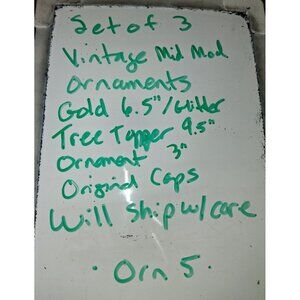 Set of 3
Vintage Mid Mod
Ornaments
Gold 6.5"/Glitter
Tree Topper 9.5"
Ornament 3"
Original Caps
Will Ship w/ care
· Orn 5 ·